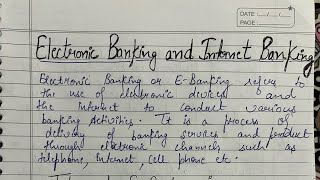 DATE: / /
PAGE:
Electronic Banking and Internet Banking
Electronic Banking or E-Banking refers to
the use of electronic devices and
the Internet to conduct various
banking activities. It is a process of
delivery of banking services and product
through electronic channels such as
telephone, Internet, cell phone etc.